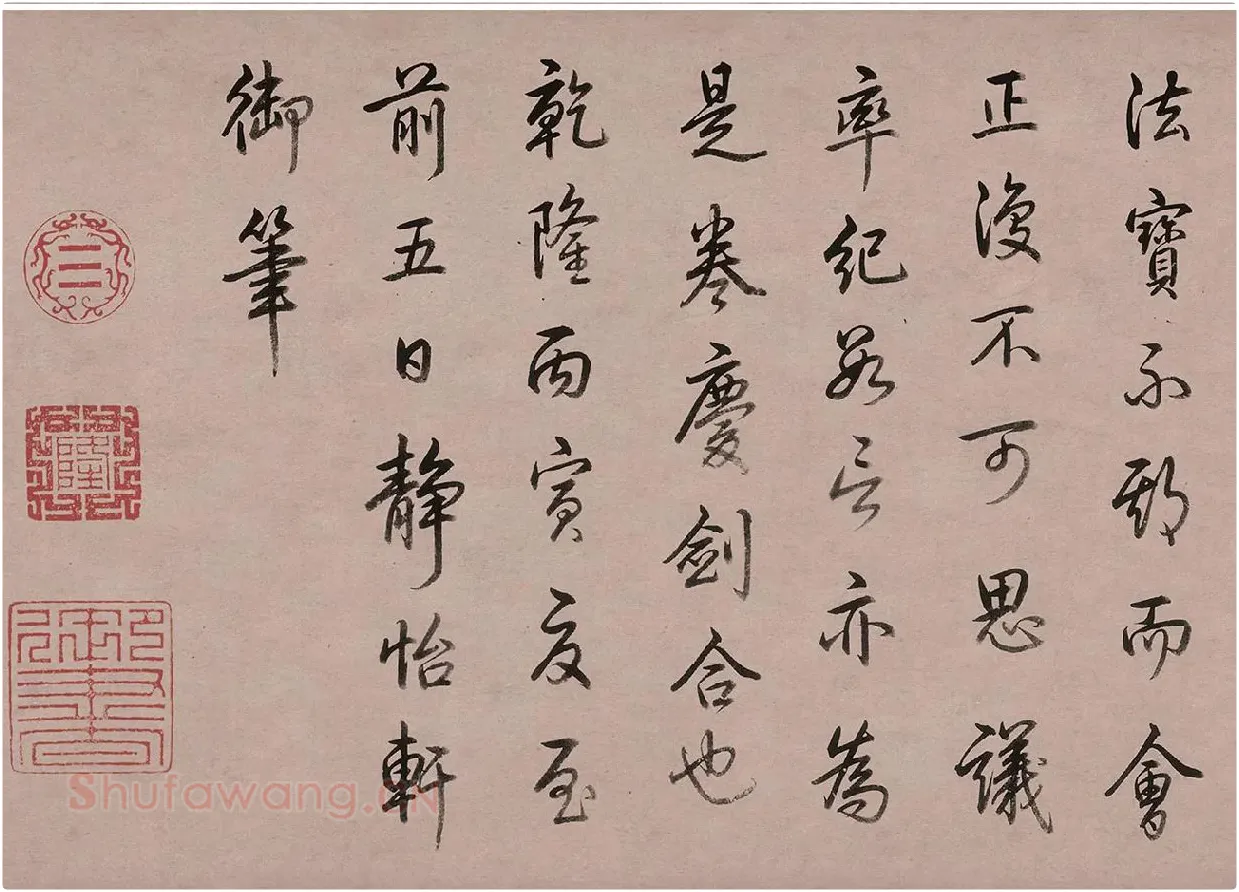 法寶不期而會
正復不可思議
率紀數言亦為
是卷慶劍合也
乾隆丙寅夏至
前五日靜怡軒
御筆
乾隆
Shufawang.cn